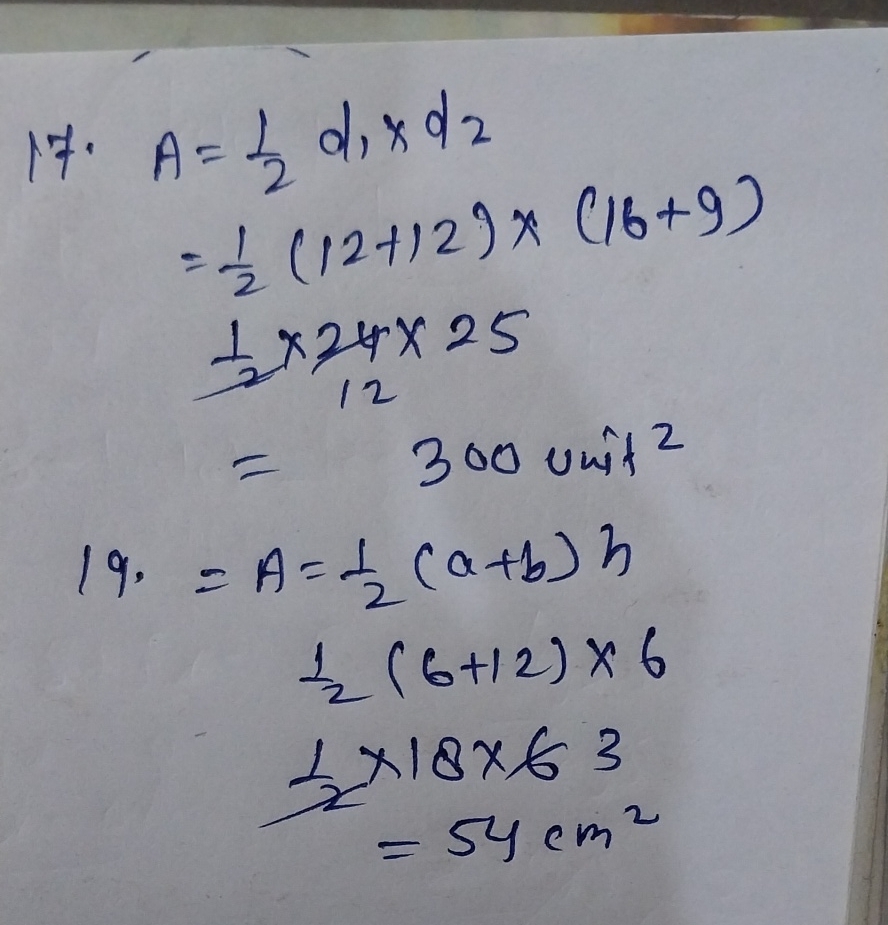 17. A = 1/2 d1 x d2
= 1/2 (12+12) x (16+9)
1/2 x 24 x 25
12
= 300 unit²
19. = A = 1/2 (a+b) h
1/2 (6+12) x 6
1/2 x 18 x 6 3
= 54 cm²